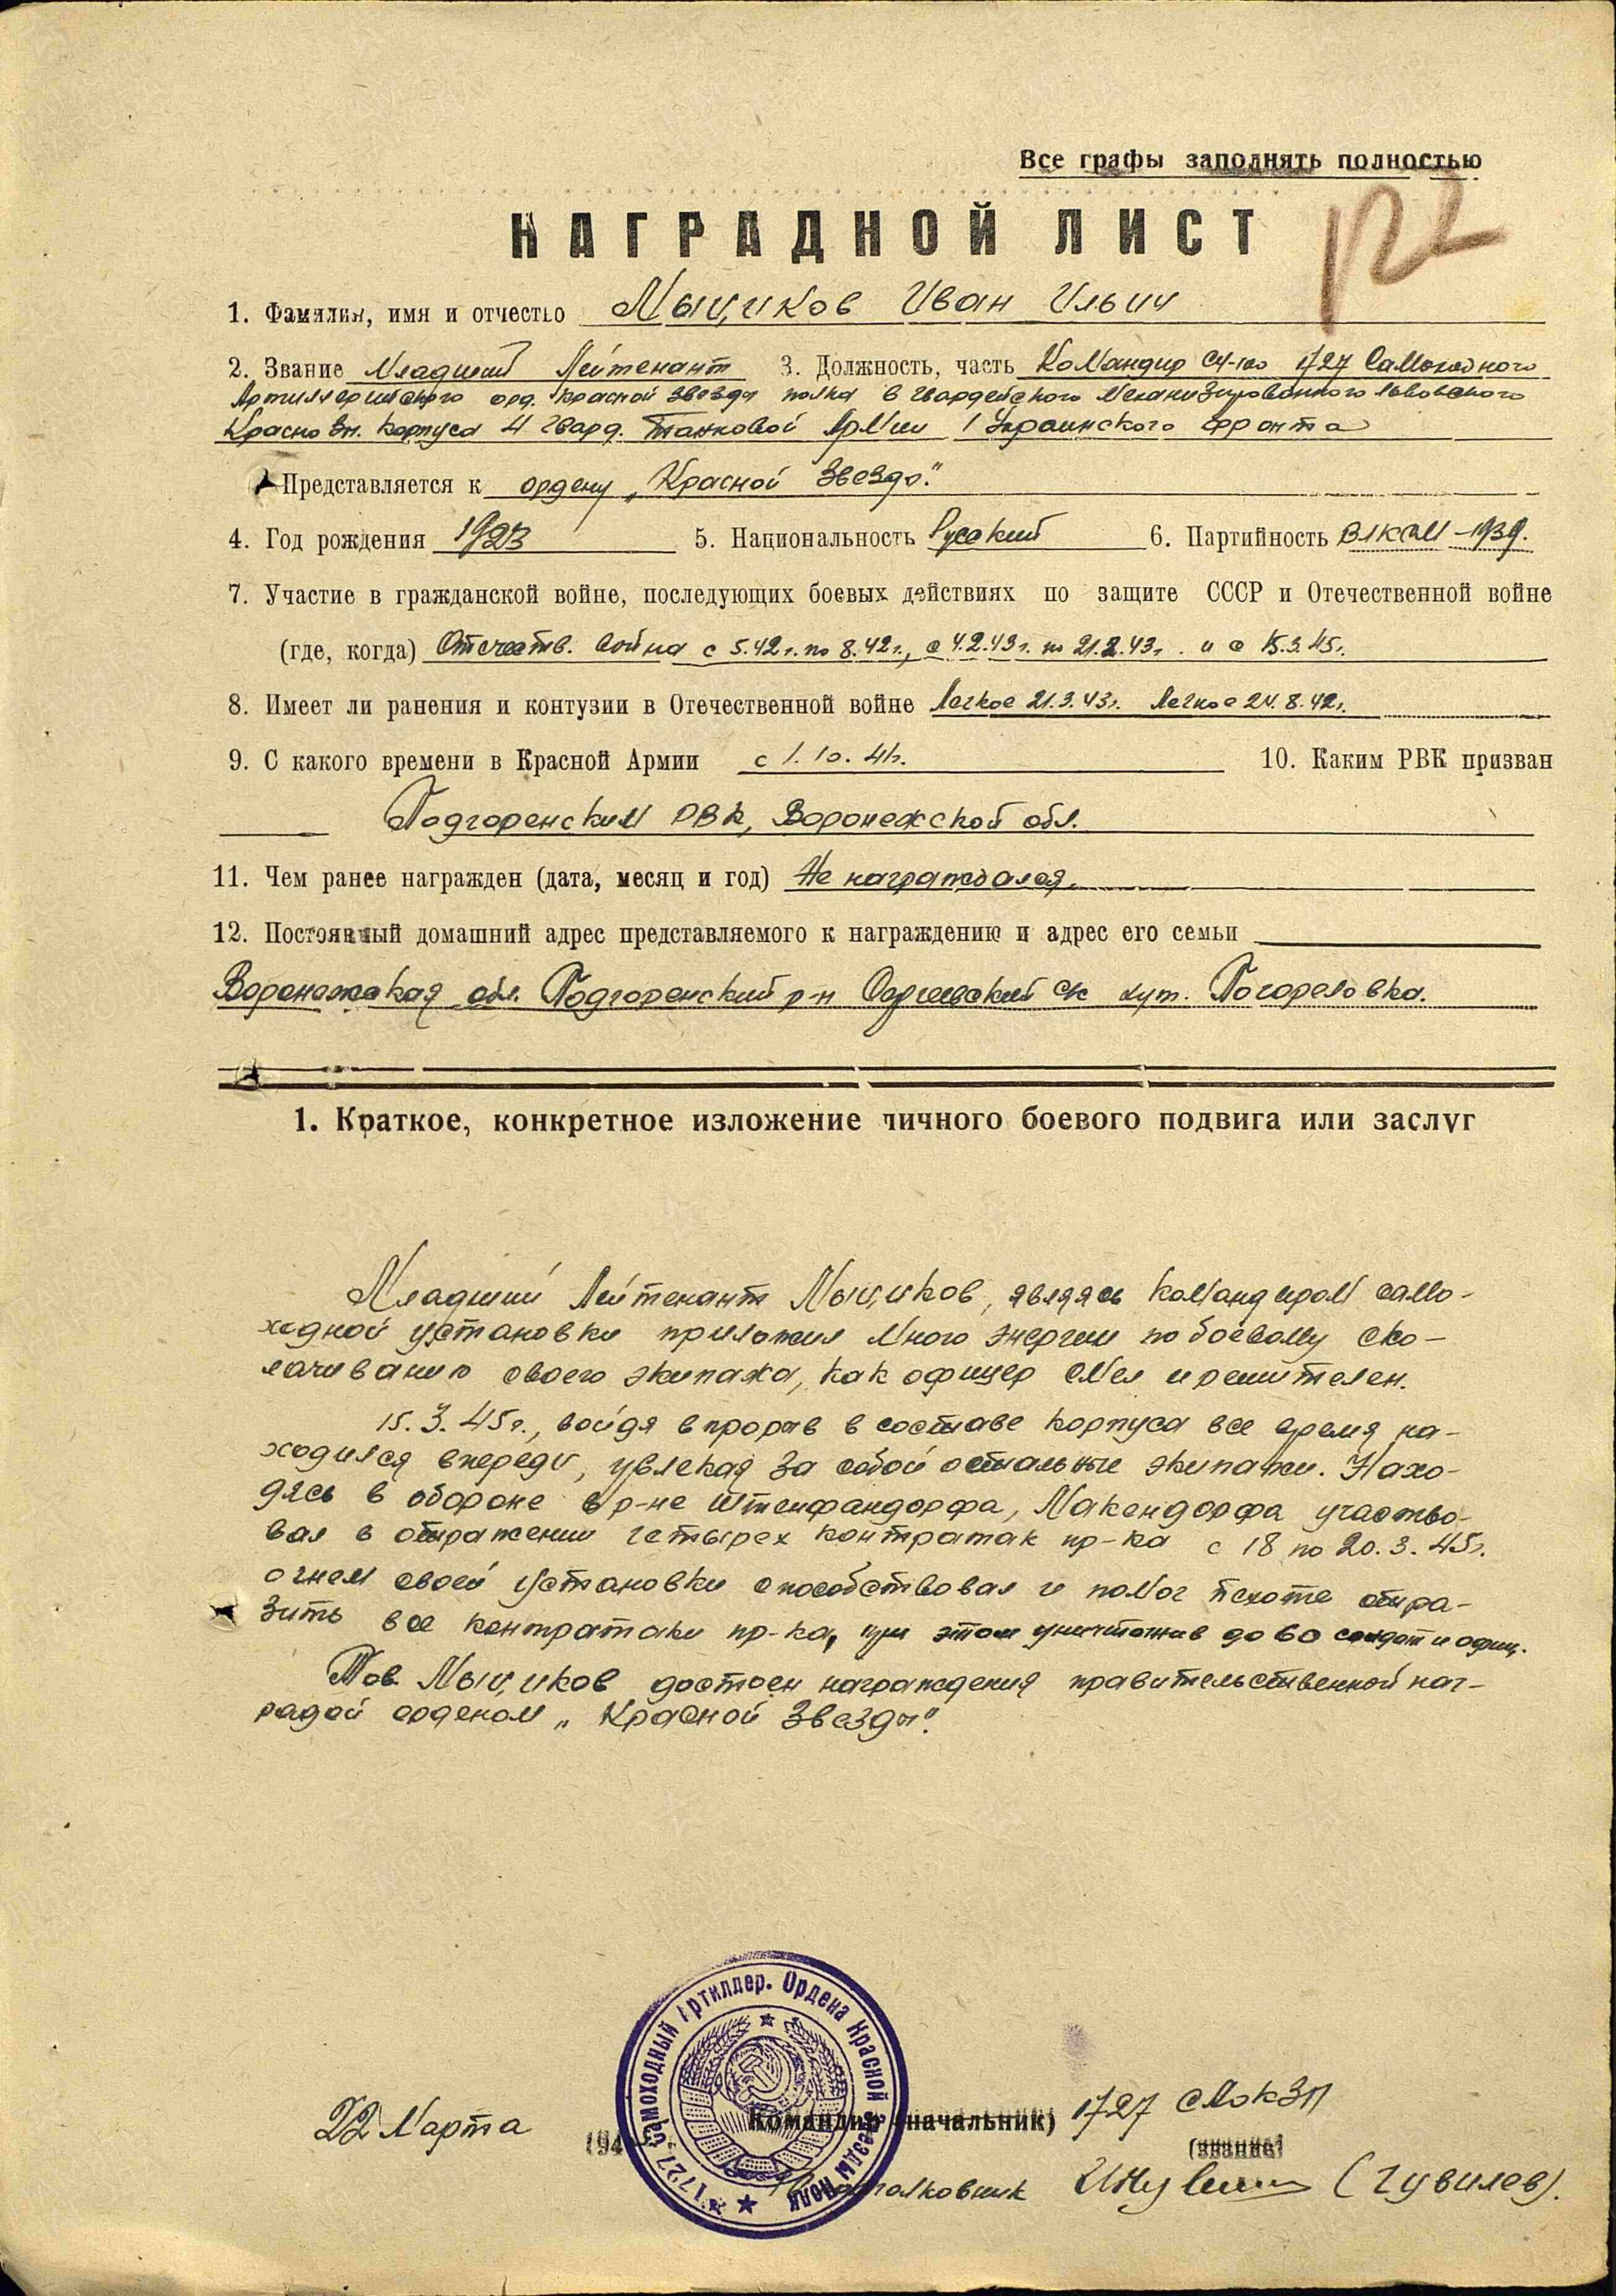 Все графы заполнять полностью
122
НАГРАДНОЙ ЛИСТ
1. Фамилия, имя и отчество Мыциков Иван Ильич
2. Звание Младший Лейтенант 3. Должность, часть Командир СУ-100 1727 Самоходного
Артиллерийского орд. Красной Звезды полка 6 Гвардейского Механизированного Львовского
Красно Зн. Корпуса 4 Гвард. Танковой Армии 1 Украинского Фронта
Представляется к ордену „Красной Звезды".
4. Год рождения 1923 5. Национальность Русский 6. Партийность ВЛКСМ - 1939.
7. Участие в гражданской войне, последующих боевых действиях по защите СССР и Отечественной войне
(где, когда) Отечеств. война с 5.42г. по 8.42г., с 4.2.43г. по 21.2.43г. и с 15.3.45г.
8. Имеет ли ранения и контузии в Отечественной войне Легкое 21.3.43г. Легкое 24.8.42г.
9. С какого времени в Красной Армии с 1.10.41г. 10. Каким РВК призван
Подгоренским РВК, Воронежской обл.
11. Чем ранее награжден (дата, месяц и год) Не награждался.
12. Постоянный домашний адрес представляемого к награждению и адрес его семьи
Воронежская обл. Подгоренский р-н Сергеевский с/с хут. Погореловка.
1. Краткое, конкретное изложение личного боевого подвига или заслуг
Младший Лейтенант Мыциков, являясь командиром само-
ходной установки приложил много энергии по боевому ско-
лачиванию своего экипажа, как офицер смел и решителен.
15.3.45г., войдя в прорыв в составе корпуса все время на-
ходился впереди, увлекая за собой остальные экипажи. Нахо-
дясь в обороне в р-не Штейнфандорфа, Макендорфа участво-
вал в отражении четырех контратак пр-ка с 18 по 20.3.45г.
огнем своей установки способствовал и помог пехоте отра-
зить все контратаки пр-ка, при этом уничтожив до 60 солдат и офиц.
Тов. Мыциков достоен награждения правительственной наг-
радой орденом „Красной Звезды".
22 Марта 194
Командир (начальник) 1727 СМОКЗП
(звание)
Подполковник (Чувилев).
1727 Самоходный Артиллер. Ордена Красной Звезды Полк